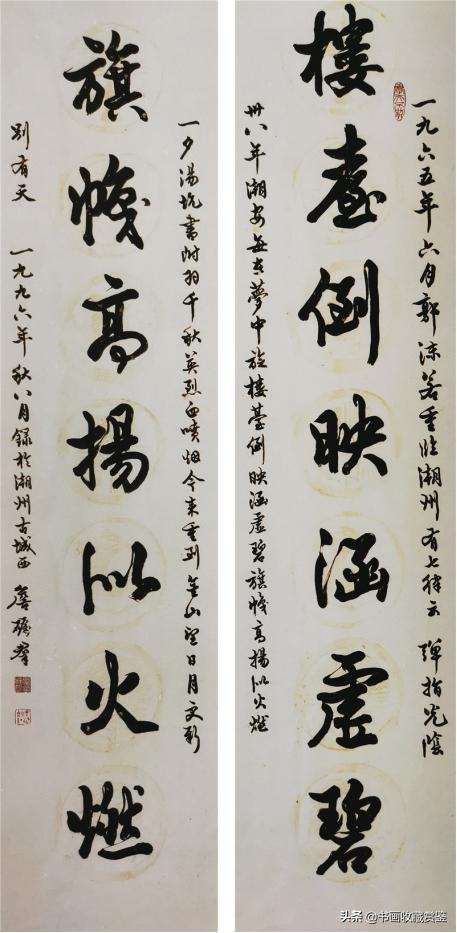 一九六五年六月郭沫若重臨潮州有七律云 彈指光陰
樓臺倒映涵虛碧
卅八年潮安每在夢中旋樓臺倒映涵虛碧旗幟高揚似火燃
一夕湯坑書附羽千秋英烈血噴烟今來重到金山望日月更新
旗幟高揚似火燃
別有天 一九九六年秋八月錄於潮州古城西 詹礪群
头条 @书画收藏赏鉴